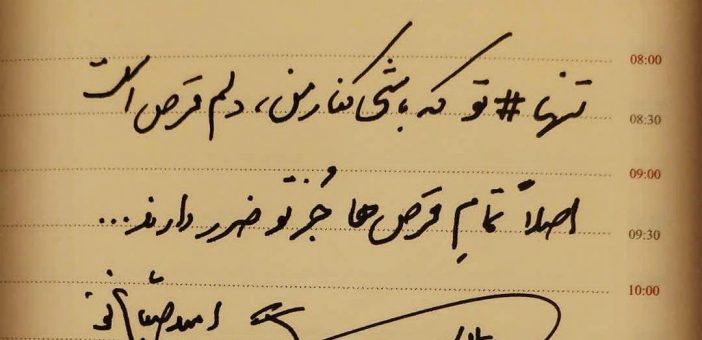 08:00
تنها #تو که باشی کنار من، دلم قرص است
08:30
09:00
اصلاً تمامِ قرص ها جُز تو ضرر دارند...
09:30
10:00
امید صباغ نو